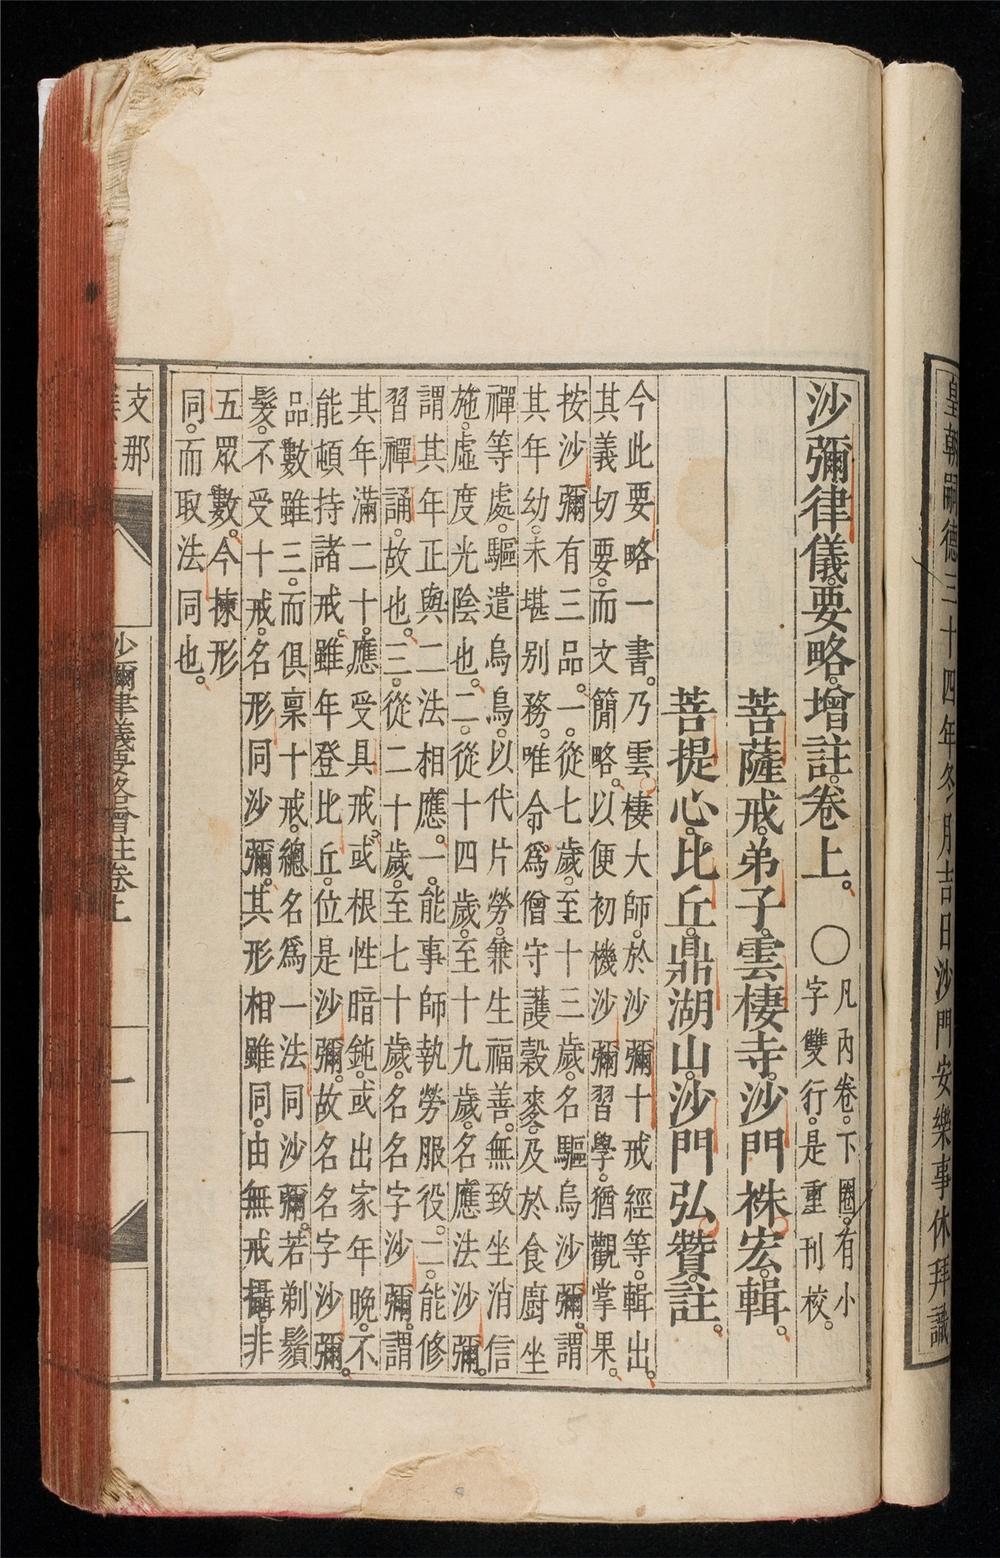 皇朝嗣德三十四年冬月吉日沙門安樂事休拜識
沙彌律儀。要略。增註。卷上。〇凡內卷。下圈。有小
字雙行。是重刊校。
菩薩戒。弟子。雲棲寺。沙門袾宏。輯。
菩提心。比丘。鼎湖山。沙門弘贊。註。
今此要略一書。乃雲棲大師。於沙彌十戒經等。輯出。
其義切要。而文簡略。以便初機沙彌習學。猶觀掌果。
按沙彌有三品。一。從七歲。至十三歲。名驅烏沙彌。謂
其年幼。未堪別務。唯令爲僧守護穀麥。及於食廚坐
禪等處。驅遣烏鳥。以代片勞。兼生福善。無致坐消信
施。虛度光陰也。二。從十四歲。至十九歲。名應法沙彌。
謂其年正與二法相應。一。能事師執勞服役。二。能修
習禪誦。故也。三。從二十歲。至七十歲。名名字沙彌。謂
其年滿二十。應受具戒。或根性暗鈍。或出家年晚。不
能頓持諸戒。雖年登比丘。位是沙彌。故名名字沙彌。
品數雖三。而俱稟十戒。總名爲一法。同沙彌。若剃鬚
髮。不受十戒。名形同沙彌。其形相雖同。由無戒攝。非
五眾數。今揀形
同。而取法同也。
支那
沙彌律儀要略增註卷上